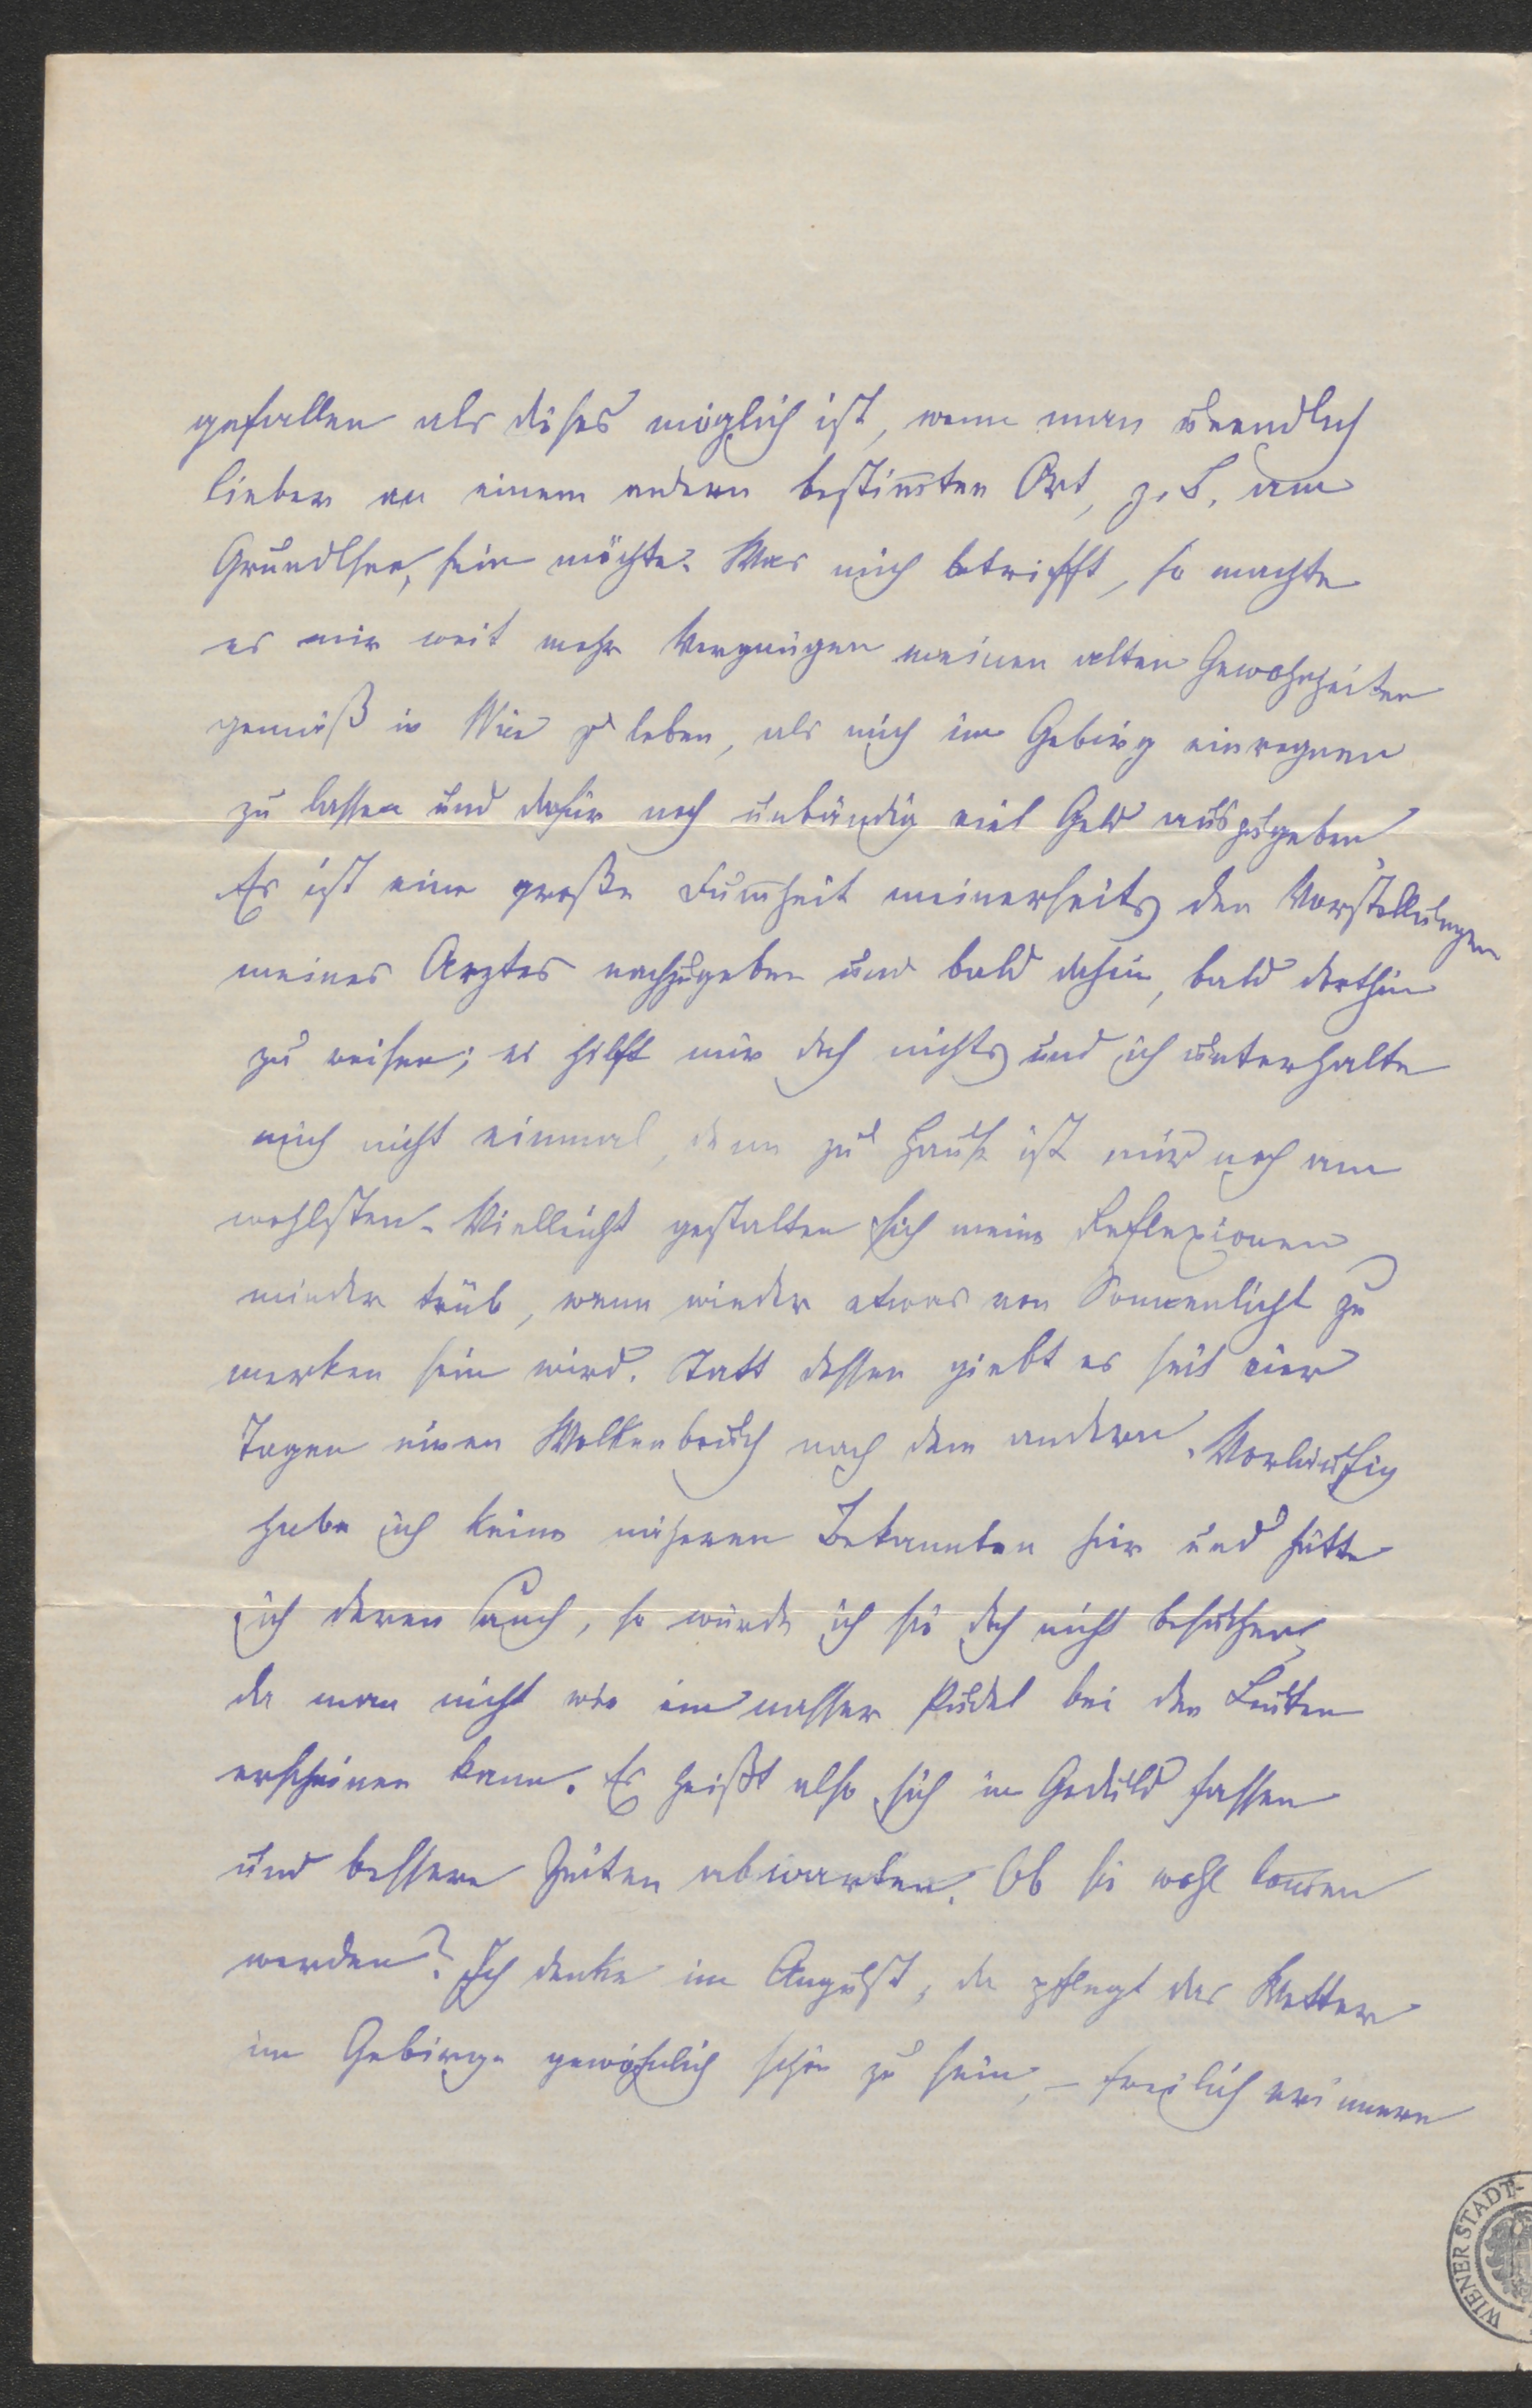 gefallen als dieses möglich ist, wenn man unendlich
lieber an einem andern bestim̅ten Ort, z. B. am
Grundlsee, sein möchte. Was mich betrifft, so machte
es mir weit mehr Vergnügen meinen alten Gewohnheiten
gemäß in Wien zu leben, als mich im Gebirg einregnen
zu lassen und dafür noch unbändig viel Geld auszugeben.
Es ist eine große Dum̅heit meinerseits den Vorstellungen
meines Arztes nachzugeben und bald dahin, bald dorthin
zu reisen; es hilft mir doch nichts und ich unterhalte
mich nicht einmal, denn zu Hause ist mir noch am
wohlsten. Vielleicht gestalten sich meine Reflexionen
minder trüb, wenn wieder etwas von Sonnenlicht zu
merken sein wird. Statt dessen giebt es seit vier
Tagen einen Wolkenbruch nach dem andern. Vorläufig
habe ich keine näheren Bekannten hier und hätte
ich deren auch, so würde ich sie doch nicht besuchen,
da man nicht wie ein nasser Pudel bei den Leuten
erscheinen kann. Es heißt also sich in Geduld fassen
und bessere Zeiten abwarten. Ob sie wohl kom̅en
werden? Ich denke im August, da pflegt das Wetter
im Gebirge gewöhnlich schön zu sein, – freilich erinnere
WIENER STADT-